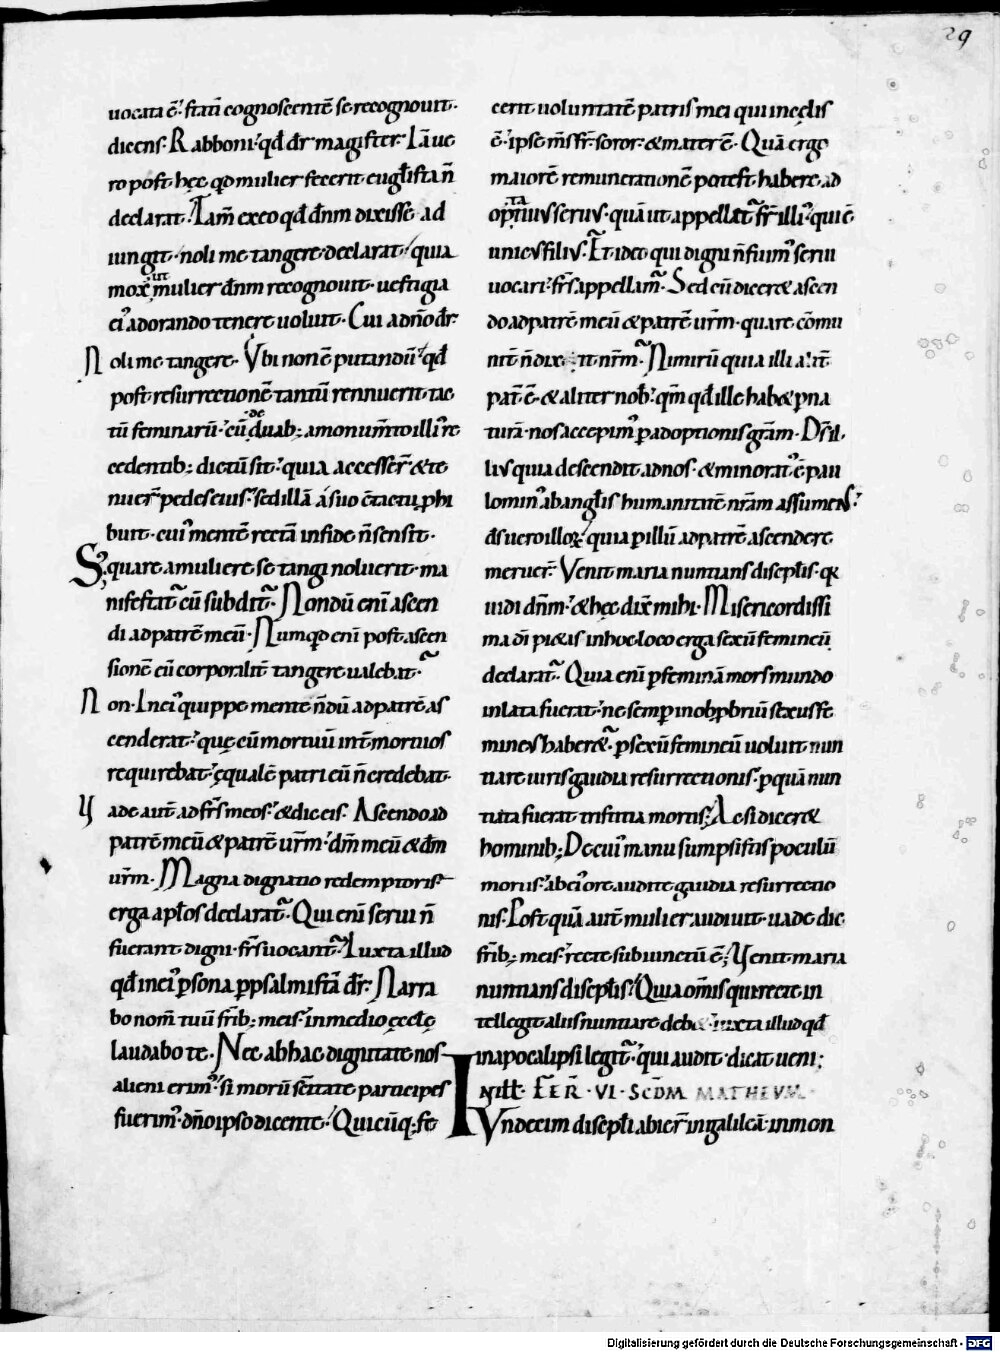 29
uocata ē. statī cognoscentē se recognouit.
dicens. Rabboni. qđ dr̄ magister. Iā ue
ro post hęc qđ mulier fecerit eugl̄ista n̄
declarat. Tam̄ ex eo qđ dn̄m dixisse ad
iungit. noli me tangere. declarat. quia
mox ut mulier dn̄m recognouit. uestigia
ei' adorando tenere uoluit. Cui a dn̄o dr̄.
Noli me tangere. Vbi non ē putandū. qđ
post resurrectionē tantū rennuerit tac
tū feminarū. cū de duab; a monum̄to illi' re
cedentib; dictū sit. quia accesser̄ & te
nuer̄ pedes eius. sed illā a suo c̄tactu ꝓhi
buit. cui' mentē rectā in fide n̄ sensit.
S; quare a muliere se tangi noluerit. ma
nifestat' cū subdit'. Nondū eni ascen
di ad patrē meū. Nunqđ eni post ascen
sionē eū corporalit̄ tangere ualebat.
Non. In ei' quippe mente n̄dū ad patrē as
cenderat. quę eū mortuū int̄ mortuos
requirebat. ęqualē patri eū n̄ credebat.
Vade aut̄ ad fr̄s meos. & dic eis. Ascendo ad
patrē meū & patrē ur̄m. dm̄ meū & dm̄
ur̄m. Magna dignatio redemptoris
erga apl̄os declarat'. Qui eni serui n̄
fuerant digni. fr̄s uocant'. Iuxta illud
qđ in ei' ꝑsona ꝑ psalmistā dr̄. Narra
bo nom̄ tuū fr̄ib; meis. in medio ęcclę
laudabo te. Nec ab hac dignitate nos
alieni erim'. si morū sc̄itate participes
fuerim'. dn̄o ipso dicente. Quicūq; fe
cerit uoluntatē patris mei qui in cęlis
ē. ipse m̄s fr̄. soror. & mater ē. Quā ergo
maiorē remunerationē potest habere ad
optatiuus seruus. quā ut appellet' fr̄ illi'. qui ē
unicus filius. Et ideo qui digni n̄ fuim' serui
uocari. fr̄s appellam'. Sed cū diceret ascen
do ad patrē meū & patrē ur̄m. quare cōmu
nit̄ n̄ dixit nr̄m. Nimirū quia illi alit̄
pat̄ ē. & aliter nob. qm̄ qđ ille hab& ꝑ na
turā. nos accepim' ꝑ adoptionis gr̄am. Ds̄ il
lius quia descendit ad nos. & minorat' ē pau
lo min' ab angl̄is humanitatē nr̄am assumens.
ds̄ uero illoꝝ. quia ꝑ illū ad patrē ascendere
meruer̄. Venit maria nuntians discipl̄is. qa
uidi dn̄m. & hęc dix̄ mihi. Misericordissi
ma dī pi&as in hoc loco erga sexū femineū
declarat'. Quia eni ꝑ feminā mors mundo
inlata fuerat. ne semꝑ in obꝓbriū sexus fe
mineus haber&. ꝑ sexū femineū uoluit nun
tiare uiris gaudia resurrectionis. ꝑ quā nun
tiata fuerat tristitia mortis. Ac si dicer&
hominib; De cui' manu sumpsistis poculū
mortis. ab ei' ore audite gaudia resurrectio
nis. Post quā aut̄ mulier audiuit. uade dic
fr̄ib; meis. recte subiunctū ē; Venit maria
nuntians discipl̄is. Quia om̄is qui recte in
tellegit. aliis nuntiare deb&. iuxta illud qđ
in apocalipsi legit'. qui audit. dicat ueni;
FER̄. VI. SCDM MATHEVM.
IN ill̄. Vndecim discipl̄i abier̄ in galileā. in mon
Digitalisierung gefördert durch die Deutsche Forschungsgemeinschaft - DFG